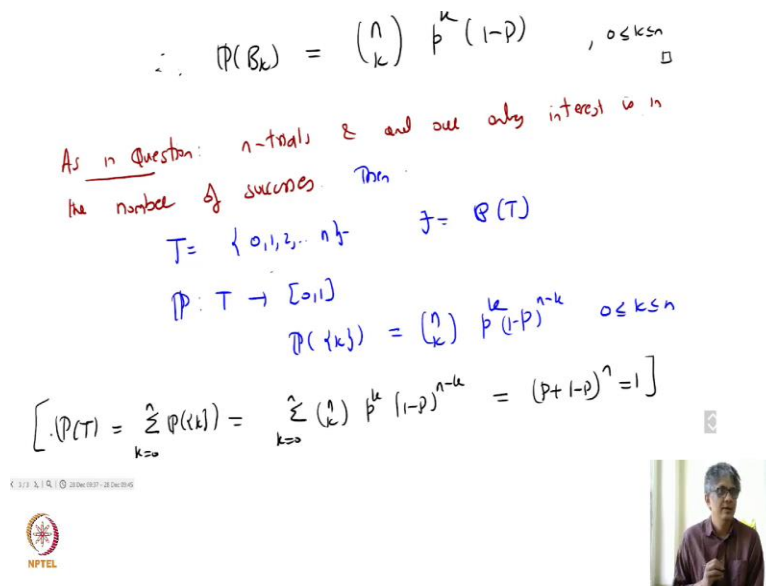 ∴ ℙ(B_k) = (n k) p^k (1-p) , 0≤k≤n □
As in Question: n-trials & and our only interest is in
the number of successes. Then
T = {0,1,2,.. n} F = P(T)
ℙ : T → [0,1]
ℙ({k}) = (n k) p^k (1-p)^{n-k} 0≤k≤n
[.ℙ(T) = Σ_{k=0}^{n} ℙ({k}) = Σ_{k=0}^{n} (n k) p^k (1-p)^{n-k} = (p+1-p)^n = 1]
3/3
NPTEL